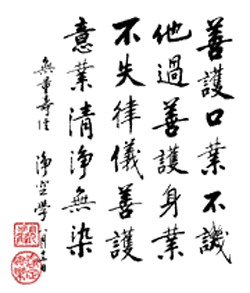 善護口業不譏
他過善護身業
不失律儀善護
意業清淨無染
無量壽經
淨空學